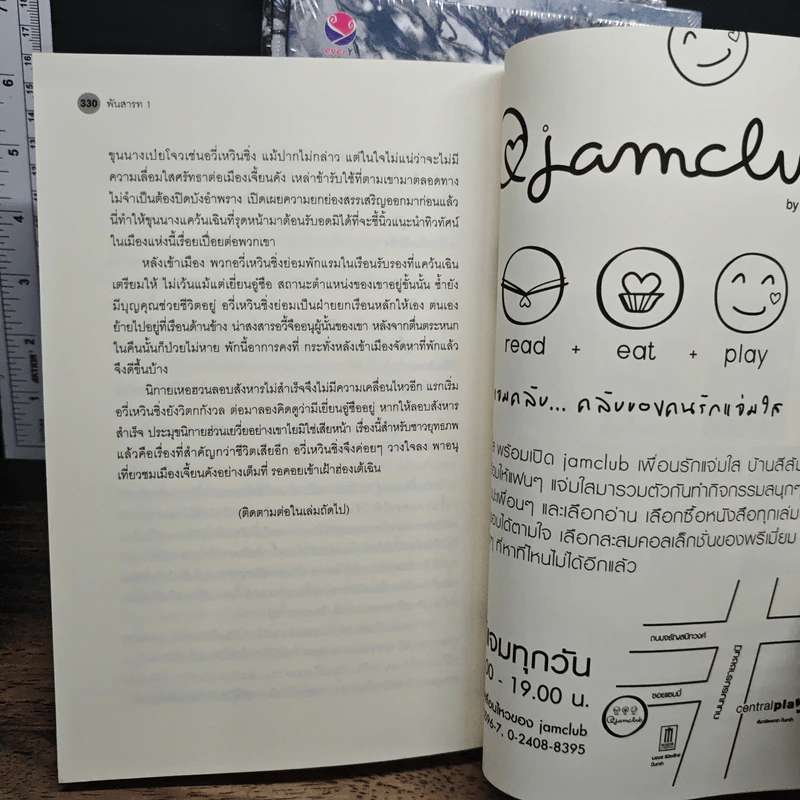 everY
330 พันสารท 1
ขุนนางเปยโจวเช่นอวี่เหวินซิ่ง แม้ปากไม่กล่าว แต่ในใจไม่แน่ว่าจะไม่มี
ความเลื่อมใสศรัทธาต่อเมืองเจี้ยนคัง เหล่าข้ารับใช้ที่ตามเขามาตลอดทาง
ไม่จำเป็นต้องปิดบังอำพราง เปิดเผยความยกย่องสรรเสริญออกมาก่อนแล้ว
นี่ทำให้ขุนนางแคว้นเฉินที่รุดหน้ามาต้อนรับอดมิได้ที่จะชี้นิ้วแนะนำทิวทัศน์
ในเมืองแห่งนี้เรื่อยเปื่อยต่อพวกเขา
หลังเข้าเมือง พวกอวี่เหวินซิ่งย่อมพักแรมในเรือนรับรองที่แคว้นเฉิน
เตรียมให้ ไม่เว้นแม้แต่เยี่ยนอู๋ซือ สถานะตำแหน่งของเขาอยู่ขั้นนั้น ซ้ำยัง
มีบุญคุณช่วยชีวิตอยู่ อวี่เหวินซิ่งย่อมเป็นฝ่ายยกเรือนหลักให้เอง ตนเอง
ย้ายไปอยู่ที่เรือนด้านข้าง น่าสงสารอวี้จืออนุผู้นั้นของเขา หลังจากตื่นตระหนก
ในคืนนั้นก็ป่วยไม่หาย พักนี้อาการคงที่ กระทั่งหลังเข้าเมืองจัดหาที่พักแล้ว
จึงดีขึ้นบ้าง
นิกายเหอฮวนลอบสังหารไม่สำเร็จจึงไม่มีความเคลื่อนไหวอีก แรกเริ่ม
อวี่เหวินซิ่งยังวิตกกังวล ต่อมาลองคิดดูว่ามีเยี่ยนอู๋ซืออยู่ หากให้ลอบสังหาร
สำเร็จ ประมุขนิกายฮ่วนเยวี่ยอย่างเขาไยมิใช่เสียหน้า เรื่องนี้สำหรับชาวยุทธภพ
แล้วคือเรื่องที่สำคัญกว่าชีวิตเสียอีก อวี่เหวินซิ่งจึงค่อยๆ วางใจลง พาอนุ
เที่ยวชมเมืองเจี้ยนคังอย่างเต็มที่ รอคอยเข้าเฝ้าฮ่องเต้เฉิน
(ติดตามต่อในเล่มถัดไป)
jamclu
by
read + eat + play
แจมคลับ... คลับของคนรักแจ่มใส
ส พร้อมเปิด jamclub เพื่อนรักแจ่มใส บ้านสีสัน
ให้แฟนๆ แจ่มใสมารวมตัวกันทำกิจกรรมสนุกๆ
เพื่อนๆ และเลือกอ่าน เลือกซื้อหนังสือทุกเล่ม
ได้ตามใจ เลือกสะสมคอลเล็กชั่นของพรีเมี่ยม
ๆ ที่หาที่ไหนไม่ได้อีกแล้ว
ทุกวัน
00 - 19.00 น.
ไหวของ jamclub
396-7, 0-2408-8395
ถนนจรัญสนิทวงศ์
ซอยแซมมี่
@jamclub
centralpla